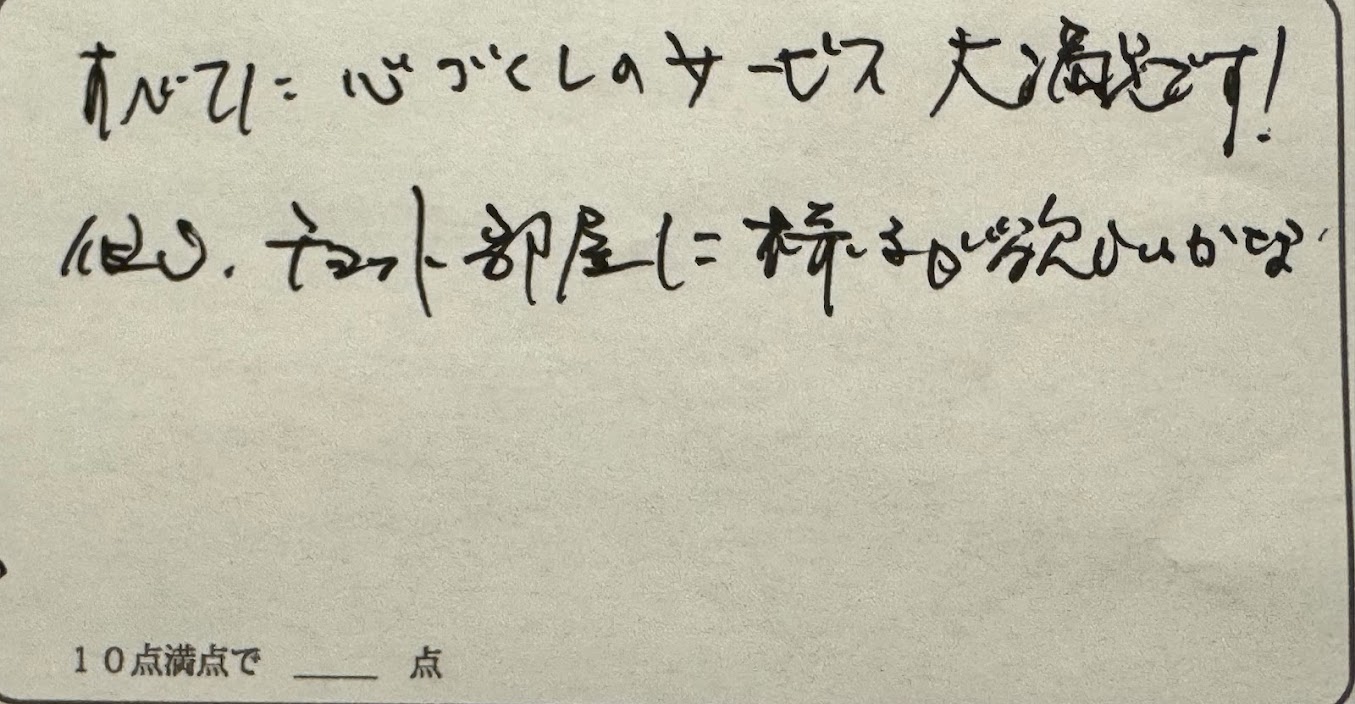 すべてに心づくしのサービス 大満足です!
但し、チョット部屋に椅子が欲しいかな
10点満点で ____ 点